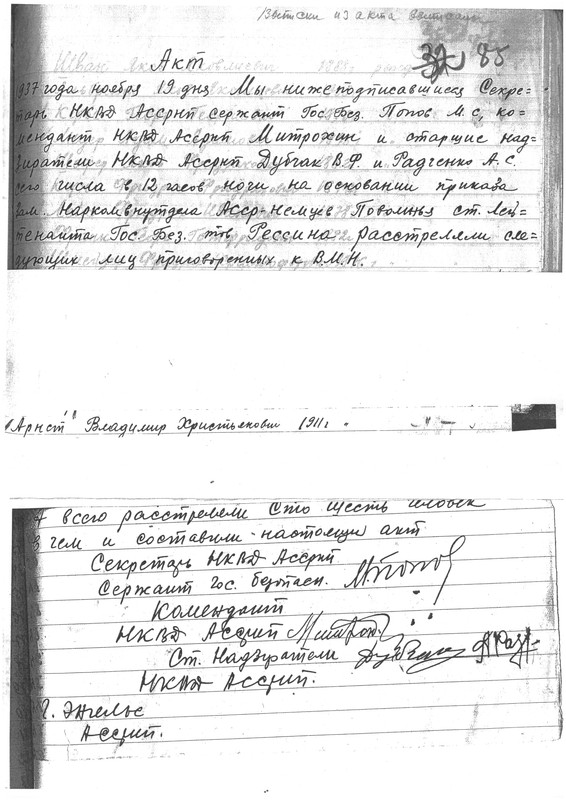 Выписки из акта
Акт
32 85
1937 года ноября 19 дня Мы нижеподписавшиеся Секре=
тарь НКВД Ассрнп сержант Гос. Без. Попов М. С, ко=
мендант НКВД Ассрнп Митрохин и старшие над=
зиратели НКВД Ассрнп Дубчак В.Ф. и Радченко А. С.
сего числа в 12 часов ночи на основании приказа
Зам. Наркомвнутдела Асср-немцев Поволжья ст. Лей=
тенанта Гос. Без. тов Рессина расстреляли сле=
дующих лиц приговоренных к В.М.Н.
Арнст Владимир Христьянович 1911 г. -"-
А всего расстреляли Сто шесть человек
в чем и составили настоящи акт
Секретарь НКВД Ассрнп
Сержант Гос. безопасн. МПопов
Комендант
НКВД Ассрнп Митрох
Ст. Надзиратели
НКВД Ассрнп.
г. Энгельс
Ассрнп.